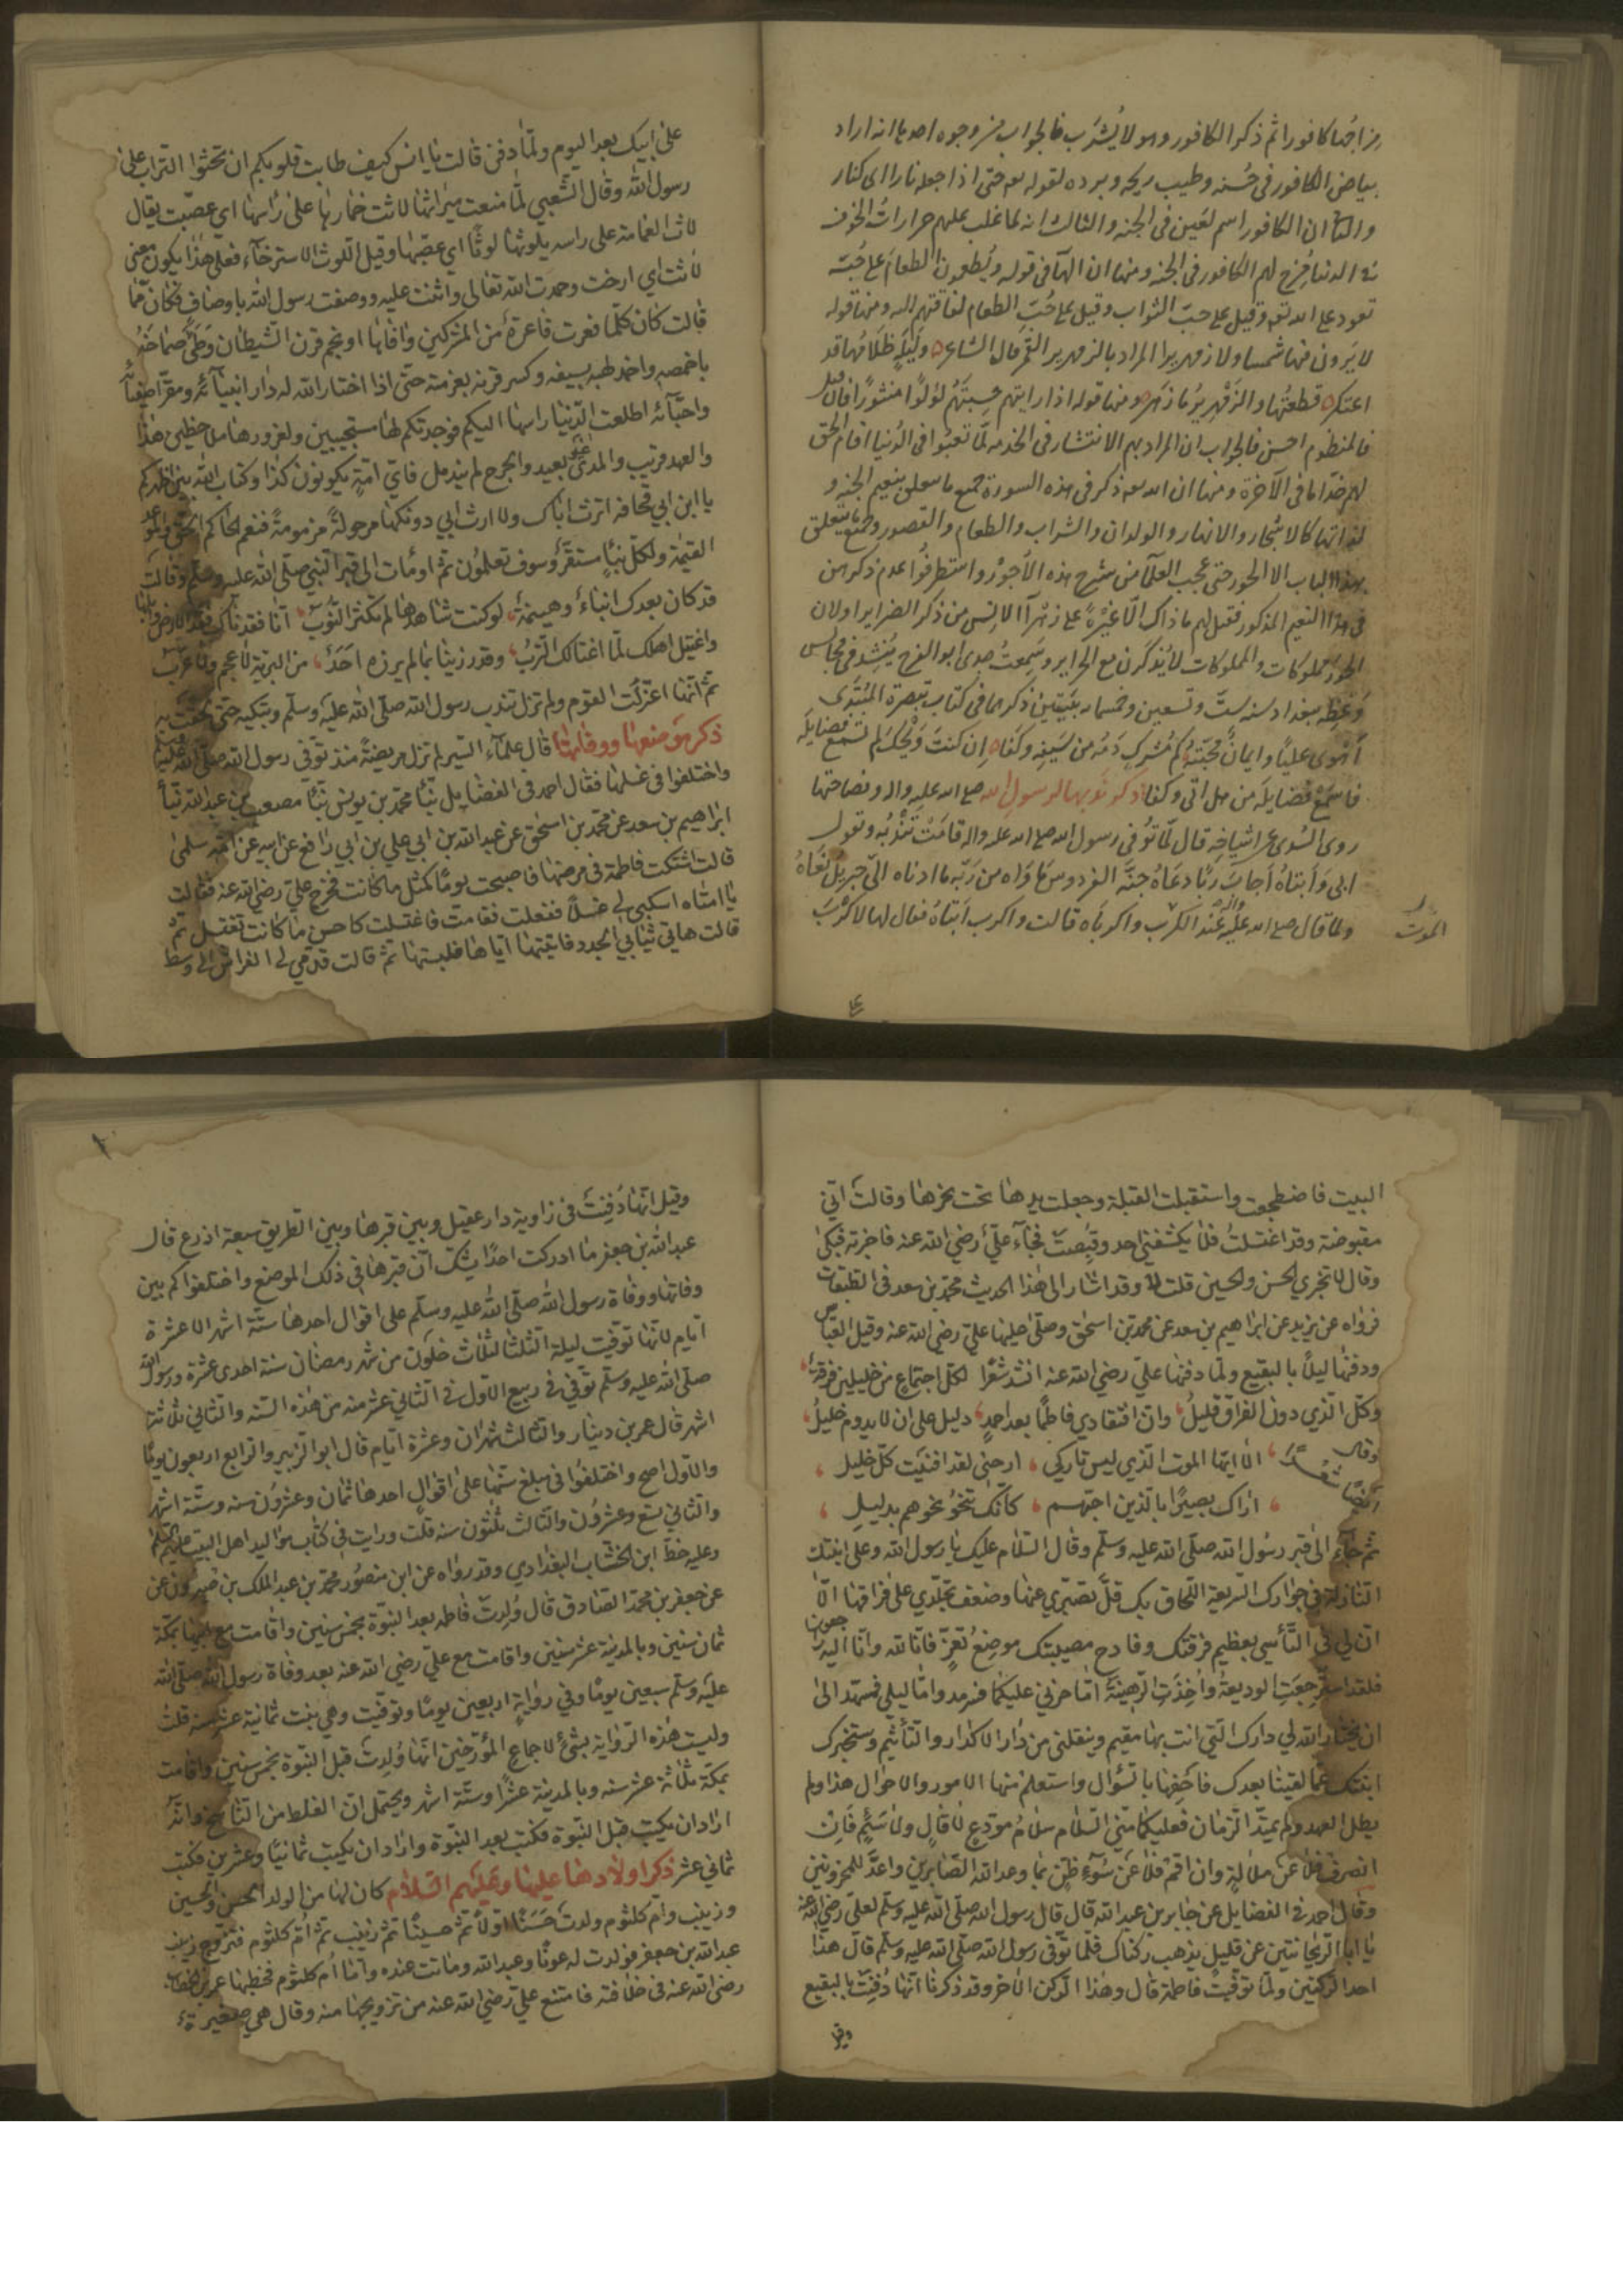 مزاجها كافورا ثم ذكر الكافور وهو لا يُشرَب فالجواب من وجوه احدها انه اراد
بياض الكافور في حُسنه وطيب ريحه وبرده لقوله تعه حتى اذا جعله نارا اى كنار
والثانى ان الكافور اسم لعين في الجنه والثالث انه لما غلب عليهم حرارات الخوف
في الدنيا مُزج لهم الكافور في الجنه ومنها ان الهآ في قوله ويُطعمون الطعام على حُبّه
تعود على الله تعه وقيل على حبّ الثواب وقيل على حُبّ الطعام لفاقتهم اليه ومنها قوله
لا يَرون فيها شمسا ولا زمهريرا المراد بالزمهرير القمر قال الشاعر وليلةٍ ظلامُها قد
اعتكر قطعتُها والزَمْهرِيرُ ما زَهَر ومنها قوله اذا رايتهم حسِبتَهُم لؤلؤًا منثورًا فان قيل
فالمنظوم احسن فالجواب ان المراد بهم الانتشار في الخدمه لمّا تعبوا في الدُنيا اقام الحق
لهم خدّاما في الآخرة ومنها ان الله تعه ذكر في هذه السورة جميع ما يتعلق بنعيم الجنه و
لذاتها كالاشجار والانهار والولدان والشراب والطعام والقصور وجميع ما يتعلق
بهذا الباب الا الحور حتى عجب العلمآ من شرح هذه الأجور واستطرفُوا عدم ذكرهن
في هذا النعيم المذكور فقيل لهم ما ذاك الّا غيْرةً على زهْرآ الانس من ذكر الضراير او لان
الحُورَ مملوكات والمملوكات لا يُذكرن مع الحراير وسَمِعتُ جدى ابو الفرج يُنشِد في مجالس
وَعْظِه ببغداد سنه ستّ وتسعين وخمسمايه بيَتيْن ذكرهما في كتاب تبصرة المُبتَدى
أهْوى عليًّا وايمانٌ محبّتهُ كم مُشركٍ دَمُه من سَيفِه وكَفا ان كنتَ وَيْحَك لم تَسمَع فضايلَه
فاسْمَعْ فضايلَه من هل اتى وكفا ذكر نَوبها الرسولِ الله صلى الله عليه واله وفصاحتها
روى السُدى عن اشياخِه قال لمّا تُوُفى رسول الله صلى الله عليه واله قامَتْ تنْدُبُه وتقول
ابى وَا أبتَاهُ أجابَ ربًّا دعَاهُ جنّة الفردوس مَاوَاه من رَبّه ما ادناه الى جبريلَ نَعَاهُ
ولما قال صلى الله عليه واله عنْد الكرْب واكرباه قالت واكرب أبتاهُ فقال لها لا كرْبَ
الموت
على ابيك بعد اليوم ولمّا دفن قالت يا انس كيف طابت قلوبكم ان تحثوا التراب على
رسول الله وقال الشعبي لمّا منعت ميراثها لاثت خمارها على رأسها اي عصّبت يقال
لاث العمامة على راسه يلوثها لوثًا اي عصّبها وقيل اللوث الاسترخآء فعلى هذا يكون معنى
لاثت اي ارخت وحمدت الله تعالى واثنت عليه ووصفت رسول الله باوصاف فكان ممّا
قالت كان كلّما فغرت فاغرة من المشركين وافاها او نجم قرن الشيطان وطئ صماخه
باخمصه واخمد لهبه بسيفه وكسر قرنه بعزمته حتّى اذا اختار الله له دار انبيآئه ومقرّ اصفيآئه
واحبّآئه اطلعت الدّنيا راسها اليكم فوجدتكم لها مستجيبين ولغرورها ملاحظين هذا
والعهد قريب والمدى غير بعيد والجرح لم يندمل فايّ امّةٍ يكونون كذا وكتاب الله بين اظهركم
يا ابن ابي قحافة اترث اباك ولا ارث ابي دونكها مرحولةً مزمومةً فنعم الحاكم الحقّ والموعد
القيمة ولكلّ نبإٍ مستقرّ وسوف تعلمُون ثمّ اومأت الى قبر النبي صلّى الله عليه وسلّم وقالت
قد كان بعدك انباءٌ وهينمةٌ لو كنت شاهدها لم تكثر النُّوَبُ انّا فقدناك فقد الارض وابلها
واغتيل اهلك لمّا اغتالك التربُ وقد رزينا بما لم يرزه احدٌ من البريّة لا عجم ولا عرب
ثم انّها اعتزلت القوم ولم تزل تندب رسول الله صلّى الله عليه وسلّم وتبكيه حتّى لحقت به
ذكر موضعها ووفاتها قال علمآء السّير لم تزل مريضةً منذ توّفى رسول الله صلّى الله عليه وسلّم
واختلفوا في غسلها فقال احمد في الفضايل ثنا محمد بن يونس ثنا مصعب بن عبدالله ثنا
ابراهيم بن سعد عن محمد بن اسحق عن عبدالله بن ابي علي بن ابي رافع عن ابيه عن امّه سلمى
قالت اشتكت فاطمة في مرضها فاصبحت يومًا كمثل ما كانت فخرج عليّ رضي الله عنه فقالت
يا امتاه اسكبي لي غسلًا ففعلت فقامت فاغتسلت كاحسن ما كانت تغتسل ثمّ
قالت هاتي ثيابي الجدد فاتيتها اياها فلبستها ثمّ قالت قدّمي لي الفراش الى وسط
البيت فاضطجعت واستقبلت القبلة وجعلت يدها تحت نحرها وقالت اني
مقبوضة وقد اغتسلتُ فلا يكشفني احد وقُبِضتْ فجآء عليّ رضي الله عنه فاخبرته فبكى
وقال لا تخبري الحسن والحسين قلت وقد اشار الى هذا الحديث محمد بن سعد في الطبقات
فرواه عن يزيد عن ابراهيم بن سعد عن محمد بن اسحق وصلّى عليها عليّ رضي الله عنه وقيل العبّاس
ودفنها ليلًا بالبقيع ولمّا دفنها عليّ رضي الله عنه انشد شعرًا لكلّ اجتماعٍ من خليلين فرقةٌ
وكلّ الّذي دون الفراق قليلُ وانّ افتقادي فاطمًا بعد احمدٍ دليل على ان لا يدوم خليلُ
وقال ايضًا شعرًا الا ايّها الموت الّذي ليس تاركي ارحني لقد افنيت كلّ خليل
اراك بصيرًا بالّذين احبّهم كأنّك تنحو نحوهم بدليل
ثم جآء الى قبر رسُول الله صلّى الله عليه وسلّم وقال السّلام عليك يا رسول الله وعلى ابنتك
النازلة في جوارك السّريعة اللّحاق بك قلّ تصبّري عنها وضعف تجلّدي على فراقها الّا
انّ لي في التّأسي بعظيم فرقتك وفادح مصيبتك موضِعُ تعزٍّ فانّا لله وانّا اليه راجعون
فلقد استُرجعت الوديعةُ وأُخِذَتِ الرّهينةُ امّا حزني عليكما فسرمد وامّا ليلي فمسهّد الى
ان يختار الله لي دارك الّتي انت بها مقيم وينقلني من دار الاكدار والتأثيم وستخبرك
ابنتك عمّا لقينا بعدك فاحفِها بالسّؤال واستعلم منها الامور والاحوال هذا ولم
يطل العهد ولم يمتدّ الزمان فعليكما منّي السّلام سلامُ مودّعٍ لا قالٍ ولا سَئِمٍ فَاِن
انصرف فلا عن ملالةٍ وان اقم فلا عن سُوءِ ظنّ بما وعد الله الصّابرين واعدّ للمحزونين
وقال احمد في الفضايل عن جابر بن عبدالله قال قال رسول الله صلّى الله عليه وسلّم لعليّ رضي الله عنه
يا ابا الرّيحانتين عن قليل يذهب ركناك فلمّا توّفى رسول الله صلّى الله عليه وسلّم قال هذا
احد الركنين ولمّا توفّيت فاطمة قال وهذا الركن الآخر وقد ذكرنا انّها دُفِنت بالبقيع
وقيل انّها دُفِنت في زاوية دار عقيل وبين قبرها وبين الطريق سبعة اذرع قال
عبدالله بن جعفر ما ادركت احدًا يشكّ انّ قبرها في ذلك الموضع واختلفوا كم بين
وفاتها ووفاة رسول الله صلّى الله عليه وسلّم على اقوال احدها ستّة اشهر الا عشرة
ايّام لانّها توفّيت ليلة الثلثا لثلاث خلون من شهر رمضان سنة احدى عشرة ورسول الله
صلّى الله عليه وسلّم توّفي في ربيع الاوّل في الثاني عشر منه من هذه السنة والثاني ثلاثة
اشهر قال عمر بن دينار والثالث شهران وعشرة ايّام قال ابو الزبير والرابع اربعون يومًا
والاوّل اصحّ واختلفُوا في مبلغ سنّها على اقوالٍ احدها ثمان وعشرُون سنه وستّة اشهر
والثاني تسع وعشرُون والثالث ثلثون سنه قلت ورايت في كتاب مواليد اهل البيت عليهم السّلم
وعليه خطّ ابن الخشّاب البغدادي وقد رواه عن ابن منصُور محمد بن عبد الملك بن خيرون عن
عن جعفر بن محمد الصّادق قال وُلدتْ فاطمه بعد النبوّة بخمس سنين واقامت مع ابيها بمكّة
ثمان سنين وبالمدينة عشر سنين واقامت مع عليّ رضي الله عنه بعد وفاة رسول الله صلّى الله
عليه وسلّم سبعين يومًا وفي رواية اربعين يومًا وتوفّيت وهي بنت ثمانية عشر سنه قلت
وليست هذه الرّواية بشئٍ لاجماع المؤرّخين انّها وُلدتْ قبل النبوّة بخمس سنين واقامت
بمكّة ثلاثة عشر سنه وبالمدينة عشرًا وستّة اشهر ويحتمل انّ الغلط من النّاسخ وانّه
اراد ان يكتب قبل النبوّة فكتب بعد النبوّة واراد ان يكتب ثمانيًا وعشرين فكتب
ثماني عشر ذكر اولادها عليها وعليهم السّلام كان لها من الولد الحسن والحسين
وزينب وامّ كلثوم ولدتْ حَسَنًا اوّلًا ثمّ حسينًا ثمّ زينب ثمّ امّ كلثوم فتزوّج زينب
عبدالله بن جعفر فولدت له عونًا وعبدالله وماتت عنده وامّا امّ كلثوم فخطبها عمر بن الخطاب
رضي الله عنه في خلافته فامتنع عليّ رضي الله عنه من تزويجها منه وقال هي صغيرة